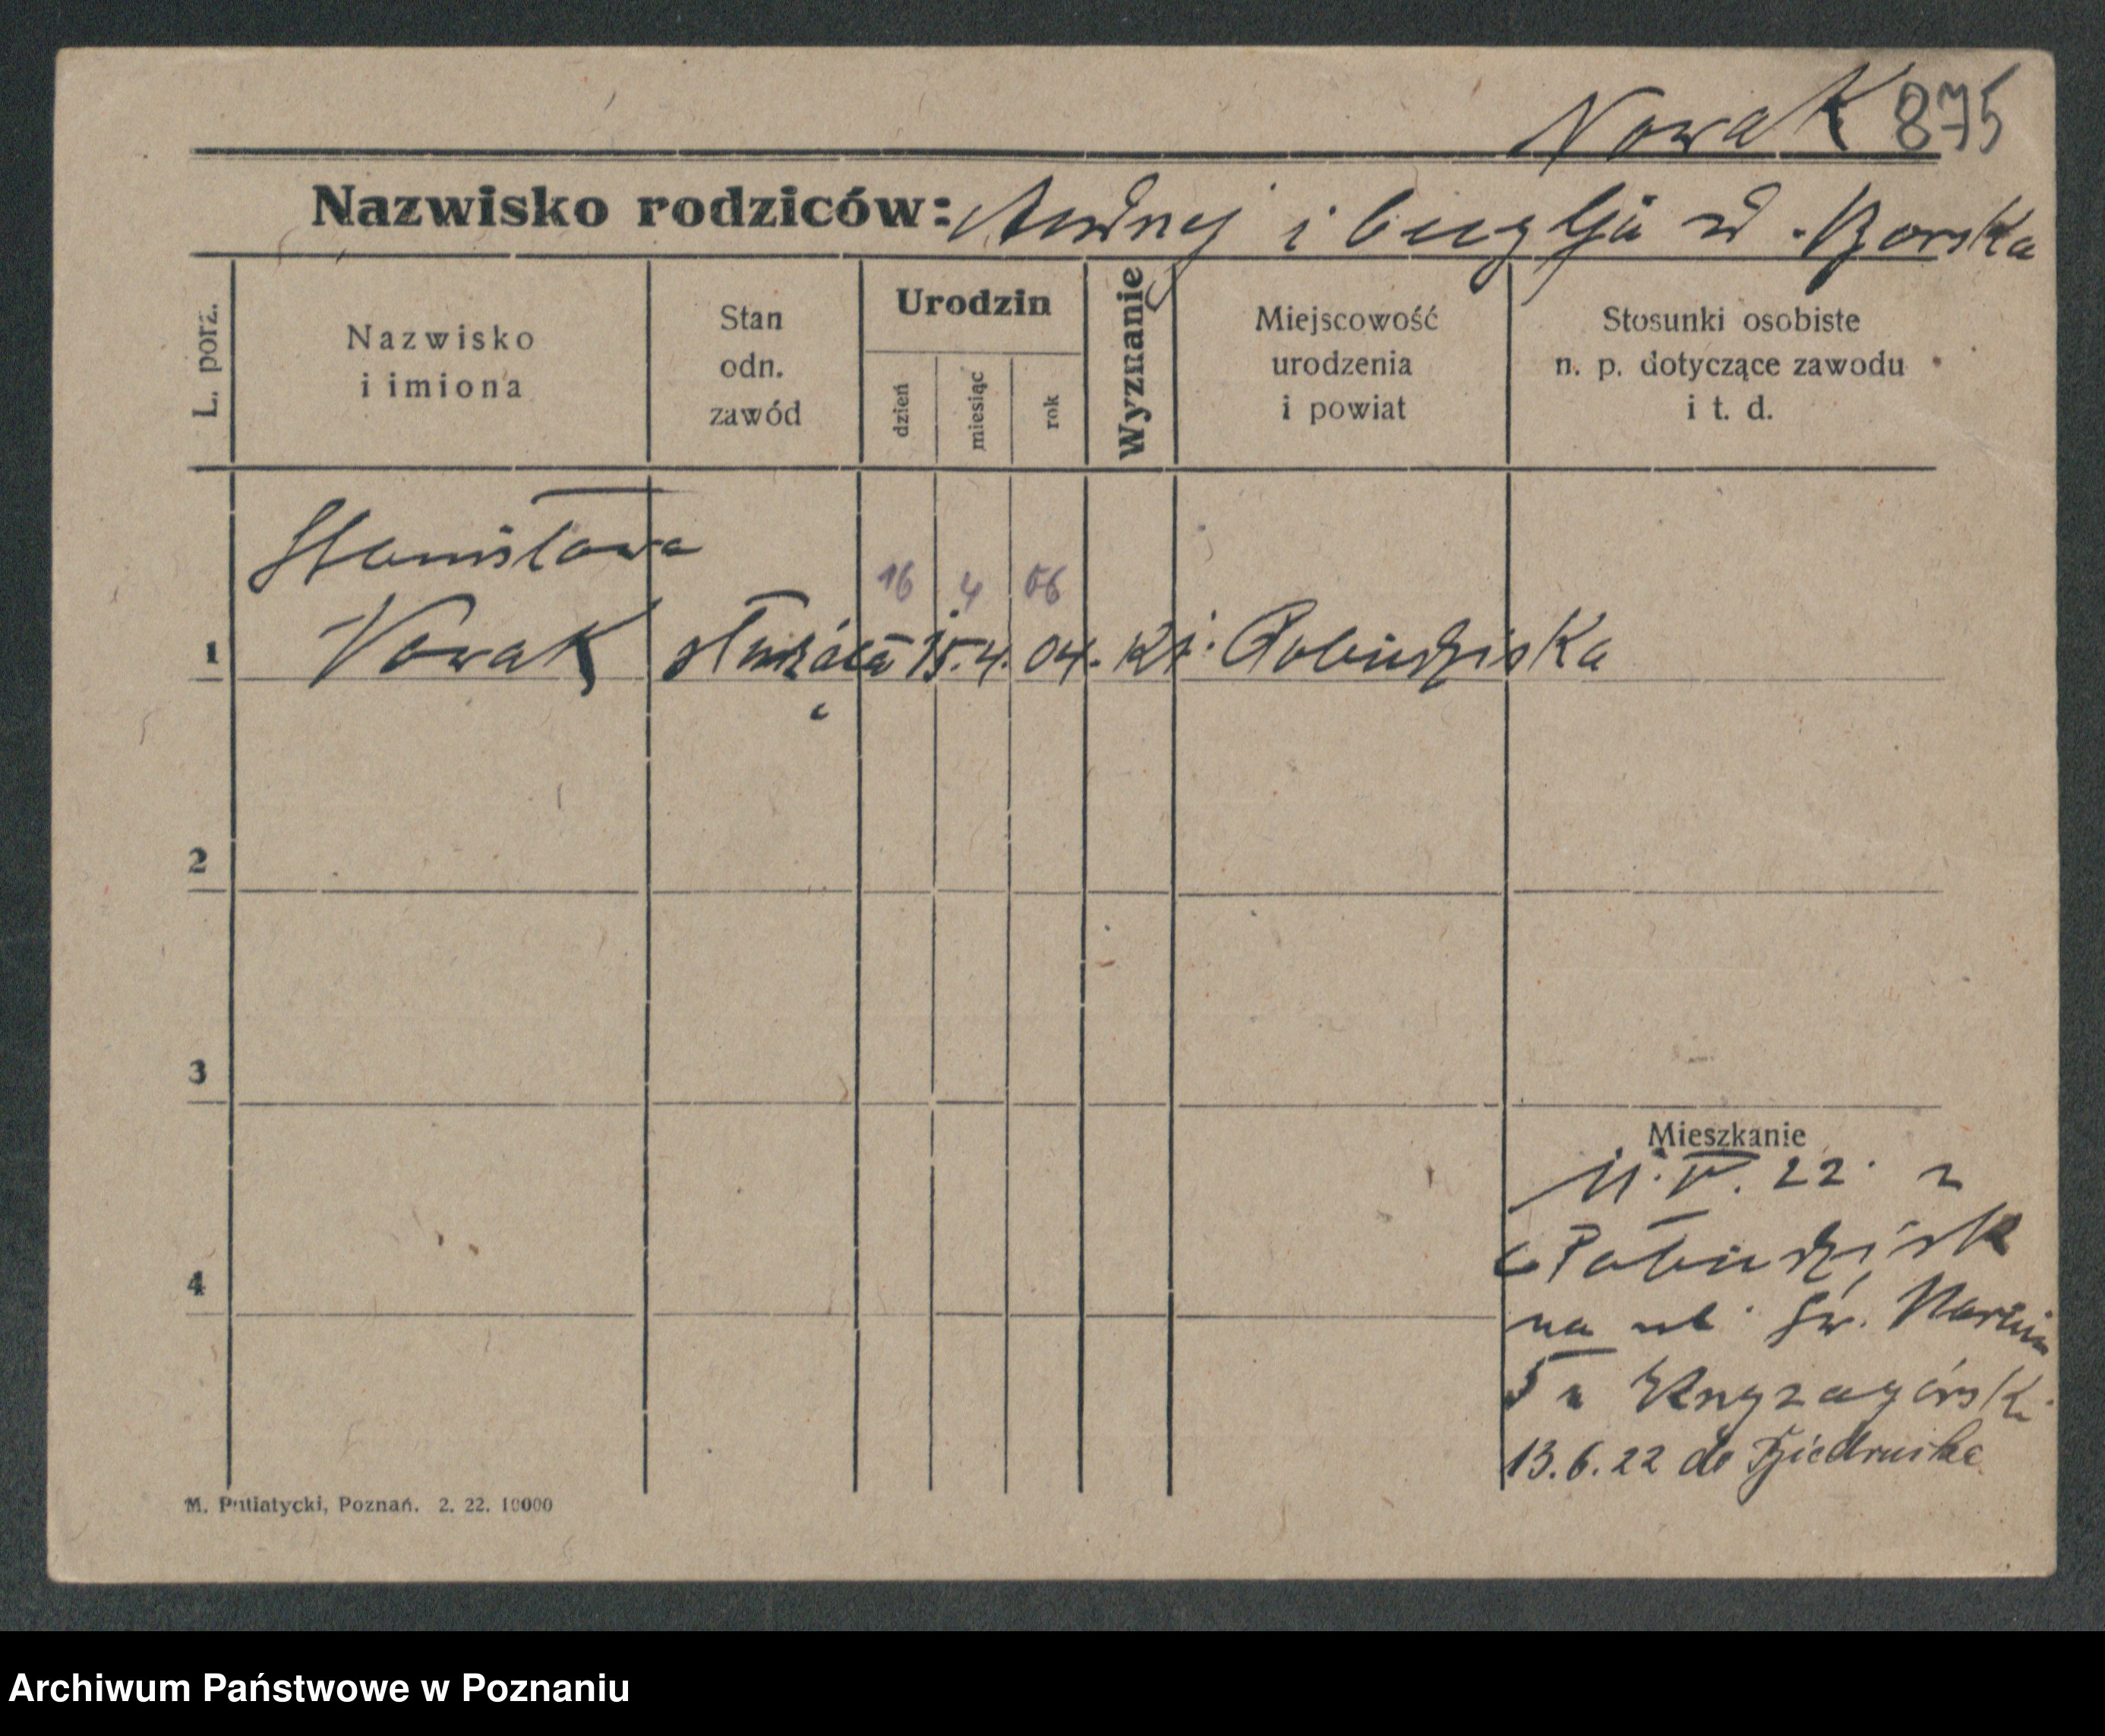 Nowak 875
Nazwisko rodziców: Andrzej i d. Borska
L. porz.
Nazwisko
i imiona
Stan
odn.
zawód
Urodzin
dzień
miesiąc
rok
Wyznanie
Miejscowość
urodzenia
i powiat
Stosunki osobiste
n. p. dotyczące zawodu
i t. d.
Stanisława
16 4 06
1 Nowak służąca 15. 4. 04. kt. Pobiedziska
2
3
Mieszkanie
11. IV. 22. z
4 Pobiedzisk
na ul. Św. Marcin
5 u
13.6.22 do Biedruska
M. Putiatycki, Poznań. 2. 22. 10000
Archiwum Państwowe w Poznaniu